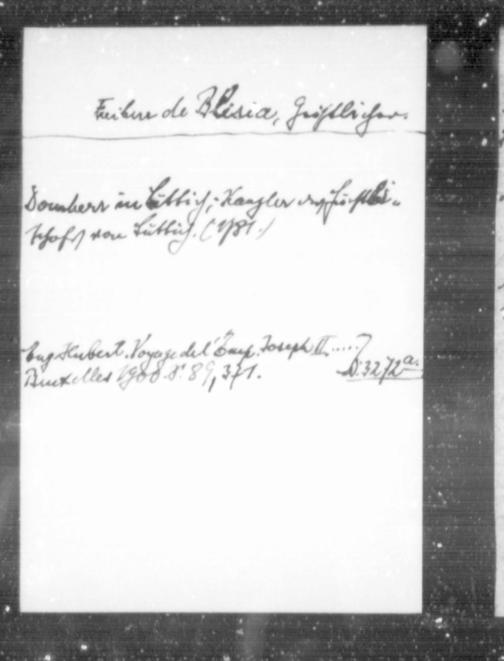 Freiherr de Blisia, Geistlicher.
Domherr in Lüttich; Kanzler des Fürstbi-
schofs von Lüttich. (1781.)
Eug. Hubert. Voyage de l'Emp. Joseph II.....
Bruxelles 1900. S. 89, 371. D. 3272a.